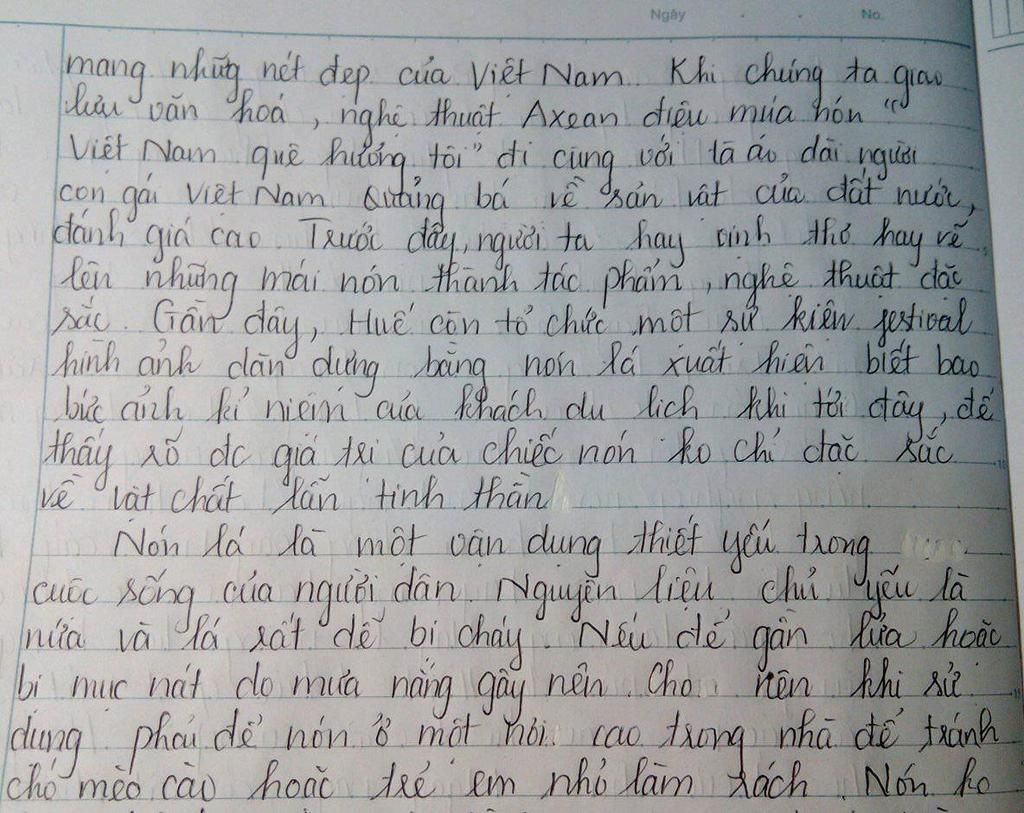 Ngày . . No.
mang những nét đẹp của Việt Nam. Khi chúng ta giao
lưu văn hoá, nghệ thuật Axean điệu múa nón "
Việt Nam quê hương tôi" đi cùng với tà áo dài người
con gái Việt Nam Quảng bá về sản vật của đất nước,
đánh giá cao. Trước đây, người ta hay vịnh thơ hay vẽ
lên những mái nón thành tác phẩm, nghệ thuật đặc
sắc. Gần đây, Huế còn tổ chức một sự kiện festival
hình ảnh dàn dựng bằng nón lá xuất hiện biết bao
bức ảnh kỉ niệm của khách du lịch khi tới đây, để
thấy rõ đc giá trị của chiếc nón ko chỉ đặc sắc
về vật chất lẫn tinh thần
Nón lá là một vận dụng thiết yếu trong
cuộc sống của người dân. Nguyên liệu chủ yếu là
nứa và lá rất dễ bị cháy. Nếu để gần lửa hoặc
bị mục nát do mưa nắng gây nên. Cho nên khi sử
dụng phải để nón ở một nơi cao trong nhà để tránh
chó mèo cào hoặc trẻ em nhỏ làm rách. Nón ko